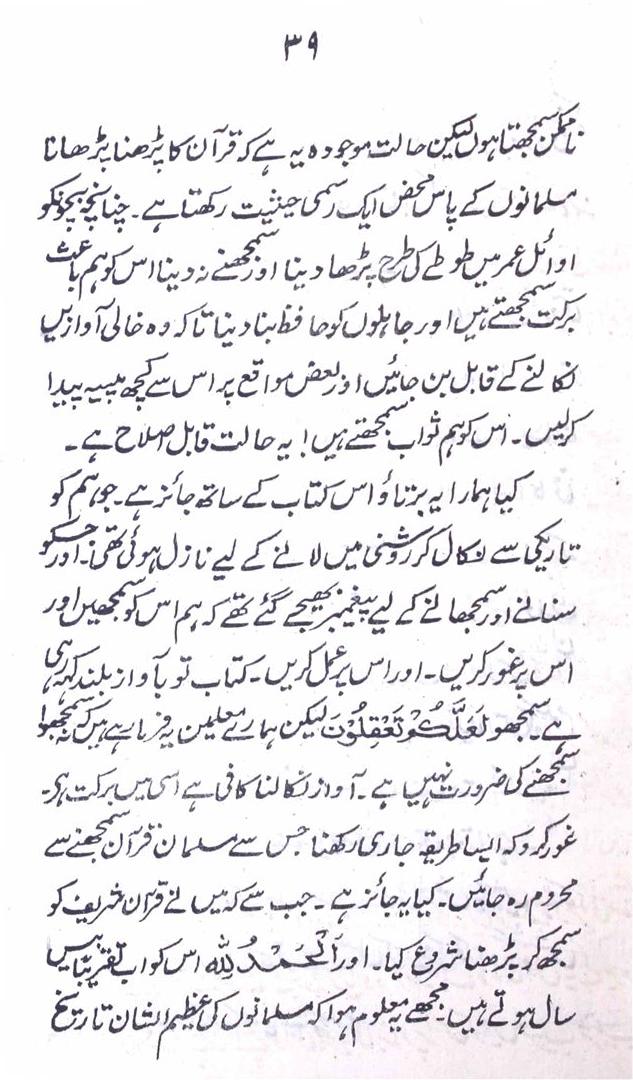 ۳۹
ناممکن سمجھتا ہوں لیکن حالت موجودہ یہ ہے کہ قرآن کا پڑھنا پڑھانا
مسلمانوں کے پاس محض ایک رسمی حیثیت رکھتا ہے۔ چنانچہ بچونکو
اوائل عمر میں طوطے کی طرح پڑھا دینا اور سمجھنے نہ دینا اس کو ہم باعث
برکت سمجھتے ہیں اور جاہلوں کو حافظ بنا دینا تاکہ وہ خالی آوازیں
نکالنے کے قابل بن جائیں اور بعض مواقع پر اس سے کچھ پیسہ پیدا
کرلیں۔ اس کو ہم ثواب سمجھتے ہیں! یہ حالت قابل اصلاح ہے۔
کیا ہمارا یہ برتاؤ اس کتاب کے ساتھ جائز ہے۔ جو ہم کو
تاریکی سے نکال کر روشنی میں لانے کے لیے نازل ہوئی تھی۔ اور جسکو
سنانے اور سمجھانے کے لیے پیغمبر بھیجے گئے تھے کہ ہم اس کو سمجھیں اور
اس پر غور کریں۔ اور اس پر عمل کریں۔ کتاب تو بآواز بلند کہہ رہی
ہے۔ سمجھو لَعَلَّكُمْ تَعْقِلُوْنَ لیکن ہمارے معلمین یہ فرما رہے ہیں کہ نہ سمجھو!
سمجھنے کی ضرورت نہیں ہے۔ آواز نکالنا کافی ہے اسی میں برکت ہی۔
غور کرو کہ ایسا طریقہ جاری رکھنا جس سے مسلمان قرآن سمجھنے سے
محروم رہ جائیں۔ کیا یہ جائز ہے۔ جب سے کہ میں نے قرآن شریف کو
سمجھ کر پڑھنا شروع کیا۔ اور اَلْحَمْدُ لِلّٰه اس کو اب تقریباً بیس
سال ہوتے ہیں۔ مجھے یہ معلوم ہوا کہ مسلمانوں کی عظیم الشان تاریخ